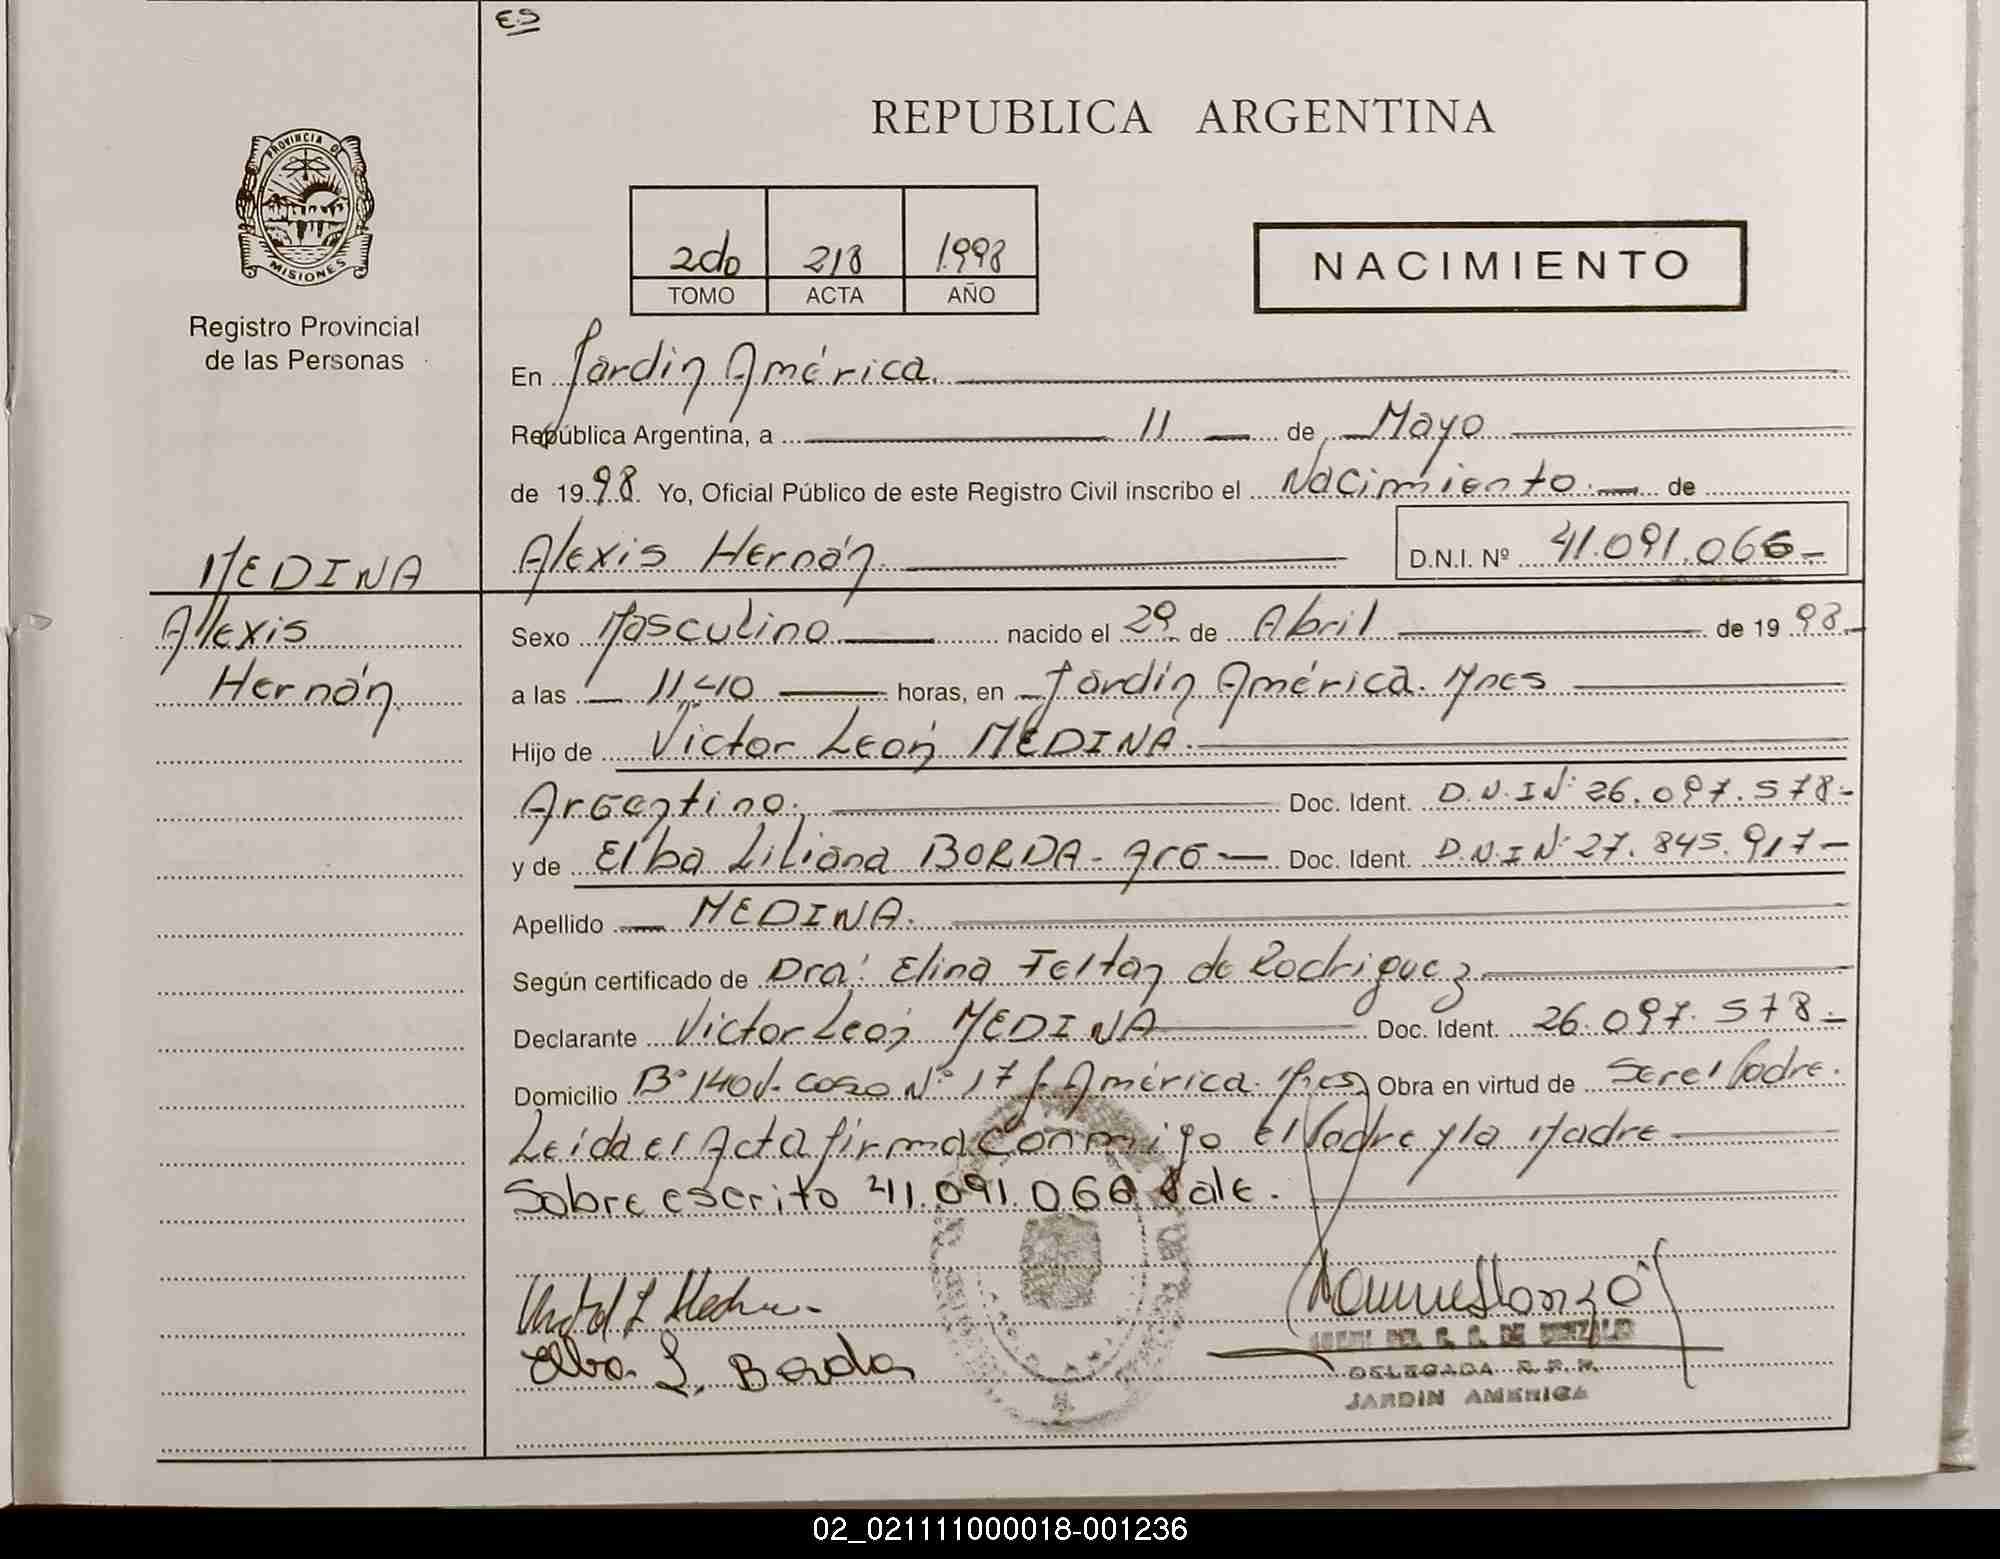 E.S
PROVINCIA DE
MISIONES
Registro Provincial
de las Personas
REPUBLICA ARGENTINA
2do 218 1.998
TOMO ACTA AÑO
NACIMIENTO
En Jardín América.
República Argentina, a 11 de Mayo
de 19 98. Yo, Oficial Público de este Registro Civil inscribo el Nacimiento. de
Alexis Hernán. D.N.I. Nº 41.091.066-
MEDINA
Alexis
Hernán.
Sexo Masculino nacido el 29 de Abril de 19 98.-
a las 11:40 horas, en Jardín América. Mnes
Hijo de Victor León MEDINA.
Argentino. Doc. Ident. D.N.I Nº 26.097.578-
y de Elba Liliana BORDA - Arg - Doc. Ident. D.N.I Nº 27.845.917-
Apellido MEDINA.
Según certificado de Dra: Elina Feltan de Rodriguez
Declarante Victor León MEDINA Doc. Ident. 26.097.578-
Domicilio Bº 140 v. casa Nº 17 J. América. Mnes Obra en virtud de Ser el Padre.
Leída el Acta firma conmigo el Padre y la Madre
Sobre escrito 41.091.066 Vale.
Elba L. Borda
DELEGADA R.P.P.
JARDIN AMERICA
02_021111000018-001236